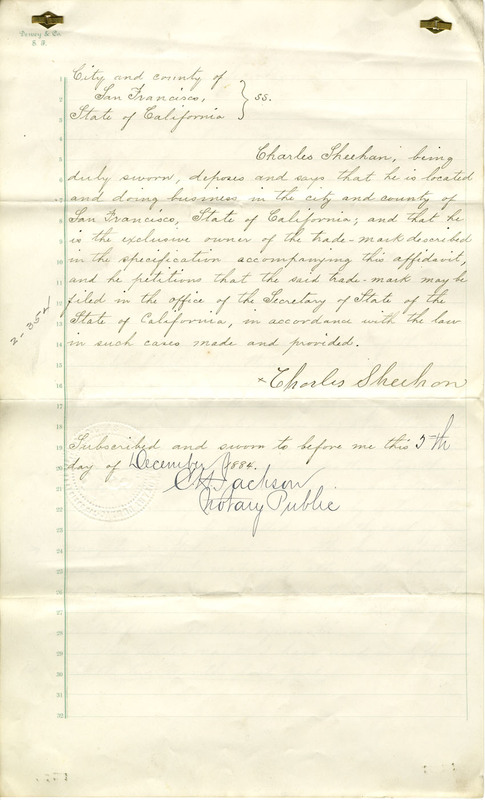 Dewey & Co.
S. F.
City and county of
San Francisco,
State of California
} ss.
Charles Sheehan, being
duly sworn, deposes and says that he is located
and doing business in the city and county of
San Francisco, State of California; and that he
is the exclusive owner of the trade-mark described
in the specification accompanying this affidavit,
and he petitions that the said trade-mark may be
filed in the office of the Secretary of State of the
State of California, in accordance with the law
in such cases made and provided.
x Charles Sheehan
Subscribed and sworn to before me this 5th
day of December 1884.
Jackson
Notary Public
1
2
3
4
5
6
7
8
9
10
11
12
13
14
15
16
17
18
19
20
21
22
23
24
25
26
27
28
29
30
31
32